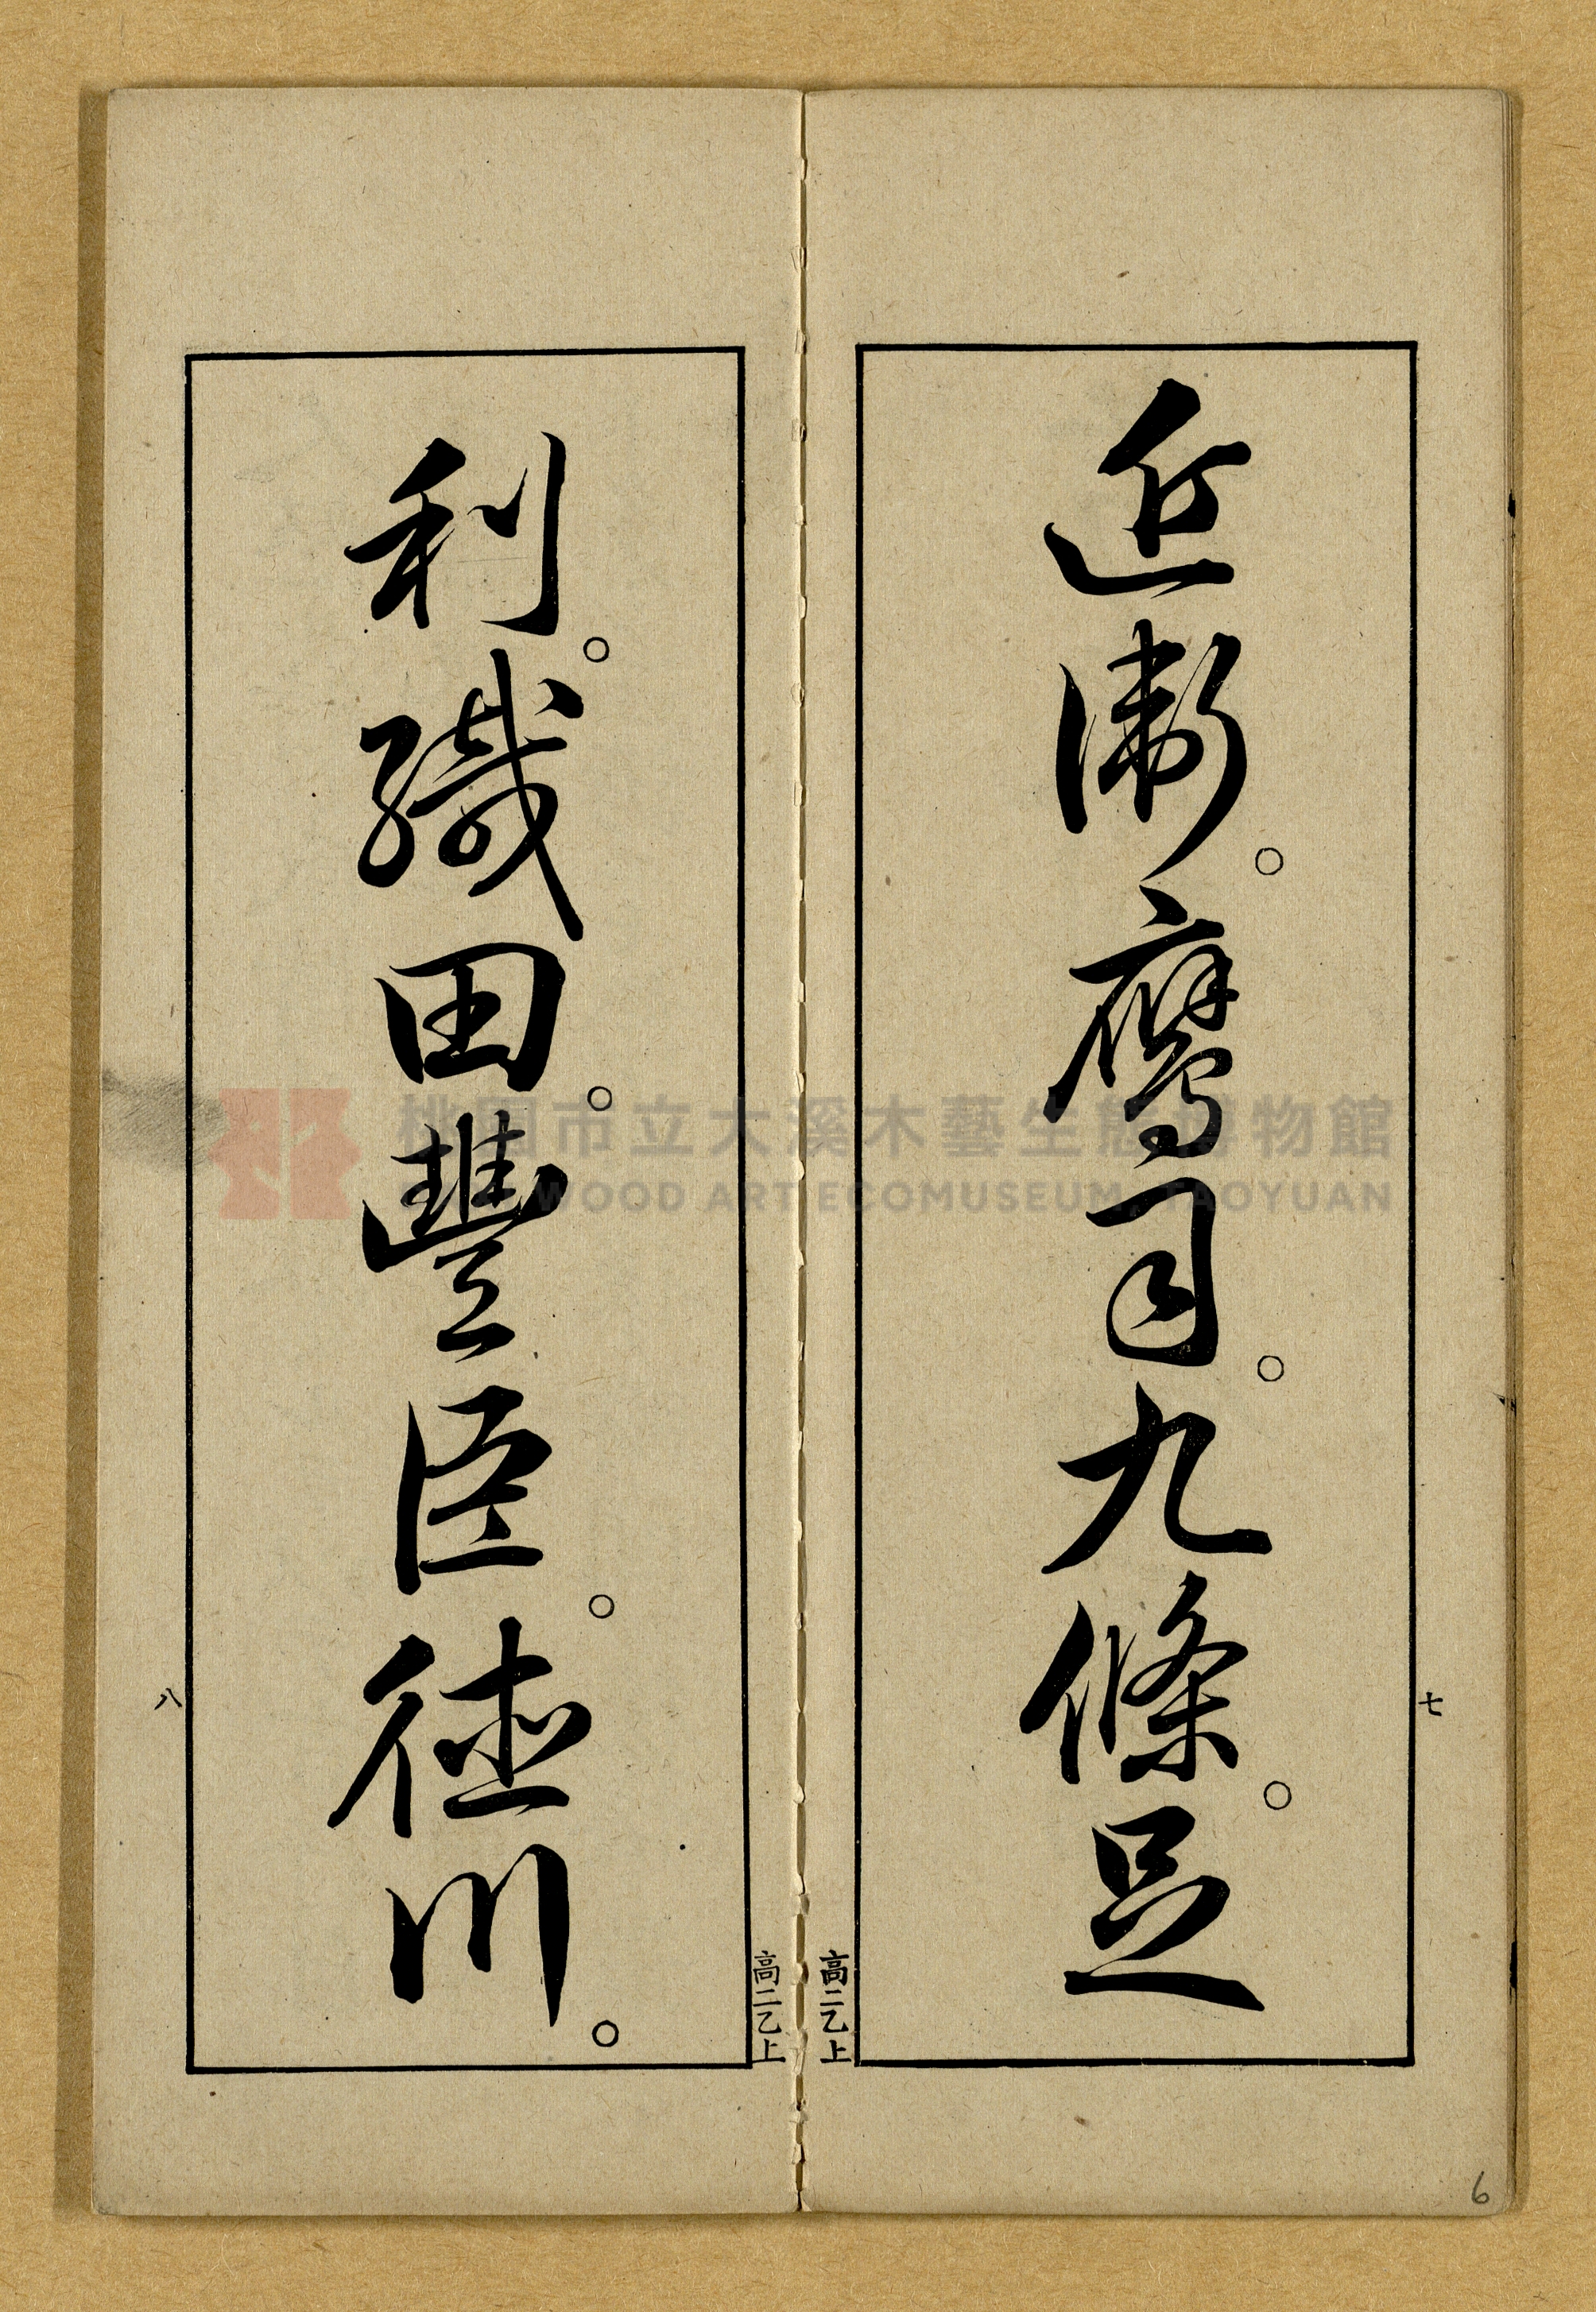 近衛。鷹司。九條。足
七
高二乙上
利。織田。豐臣。徳川。
八
高二乙上
6
桃園市立大溪木藝生態博物館
WOOD ART ECOMUSEUM, TAOYUAN